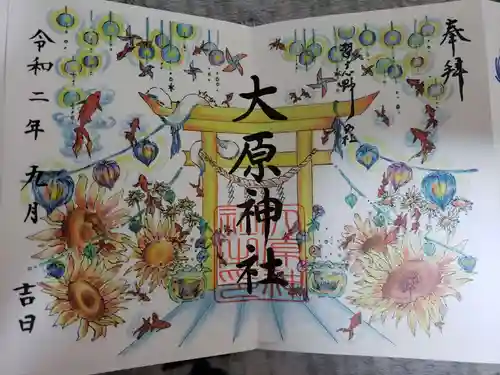 奉拝
大原神社
令和二年九月
吉日